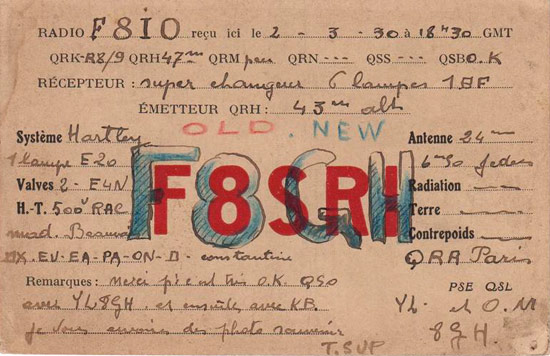 RADIO F8IO reçu ici le 2-3-30 à 18h30 GMT
QRK-R8/9 QRH 47m QRM peu QRN --- QSS --- QSB O.K
RÉCEPTEUR : super changeur 6 lampes 1BF
ÉMETTEUR QRH : 43m alt
OLD. NEW
Système Hartley Antenne 24m
1 lampe E20 6m50
Valves 2-E4N Radiation
H.-T. 500v RAC Terre
mod. Contrepoids
DX. EV-EA-PA-ON-D - constantine QRA Paris
F8SRH
F8GH
Remarques : Merci O.K QSO PSE QSL
avec YL8GH et ensuite avec YL et O.M
je vous envoie des photo souvenir 8GH.
T.SVP